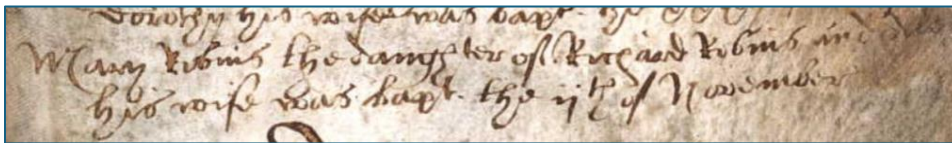 dorothy his wife was bapt. the
Mary Robins the daughter of Richard Robins and
his wife was bapt. the ijth of November